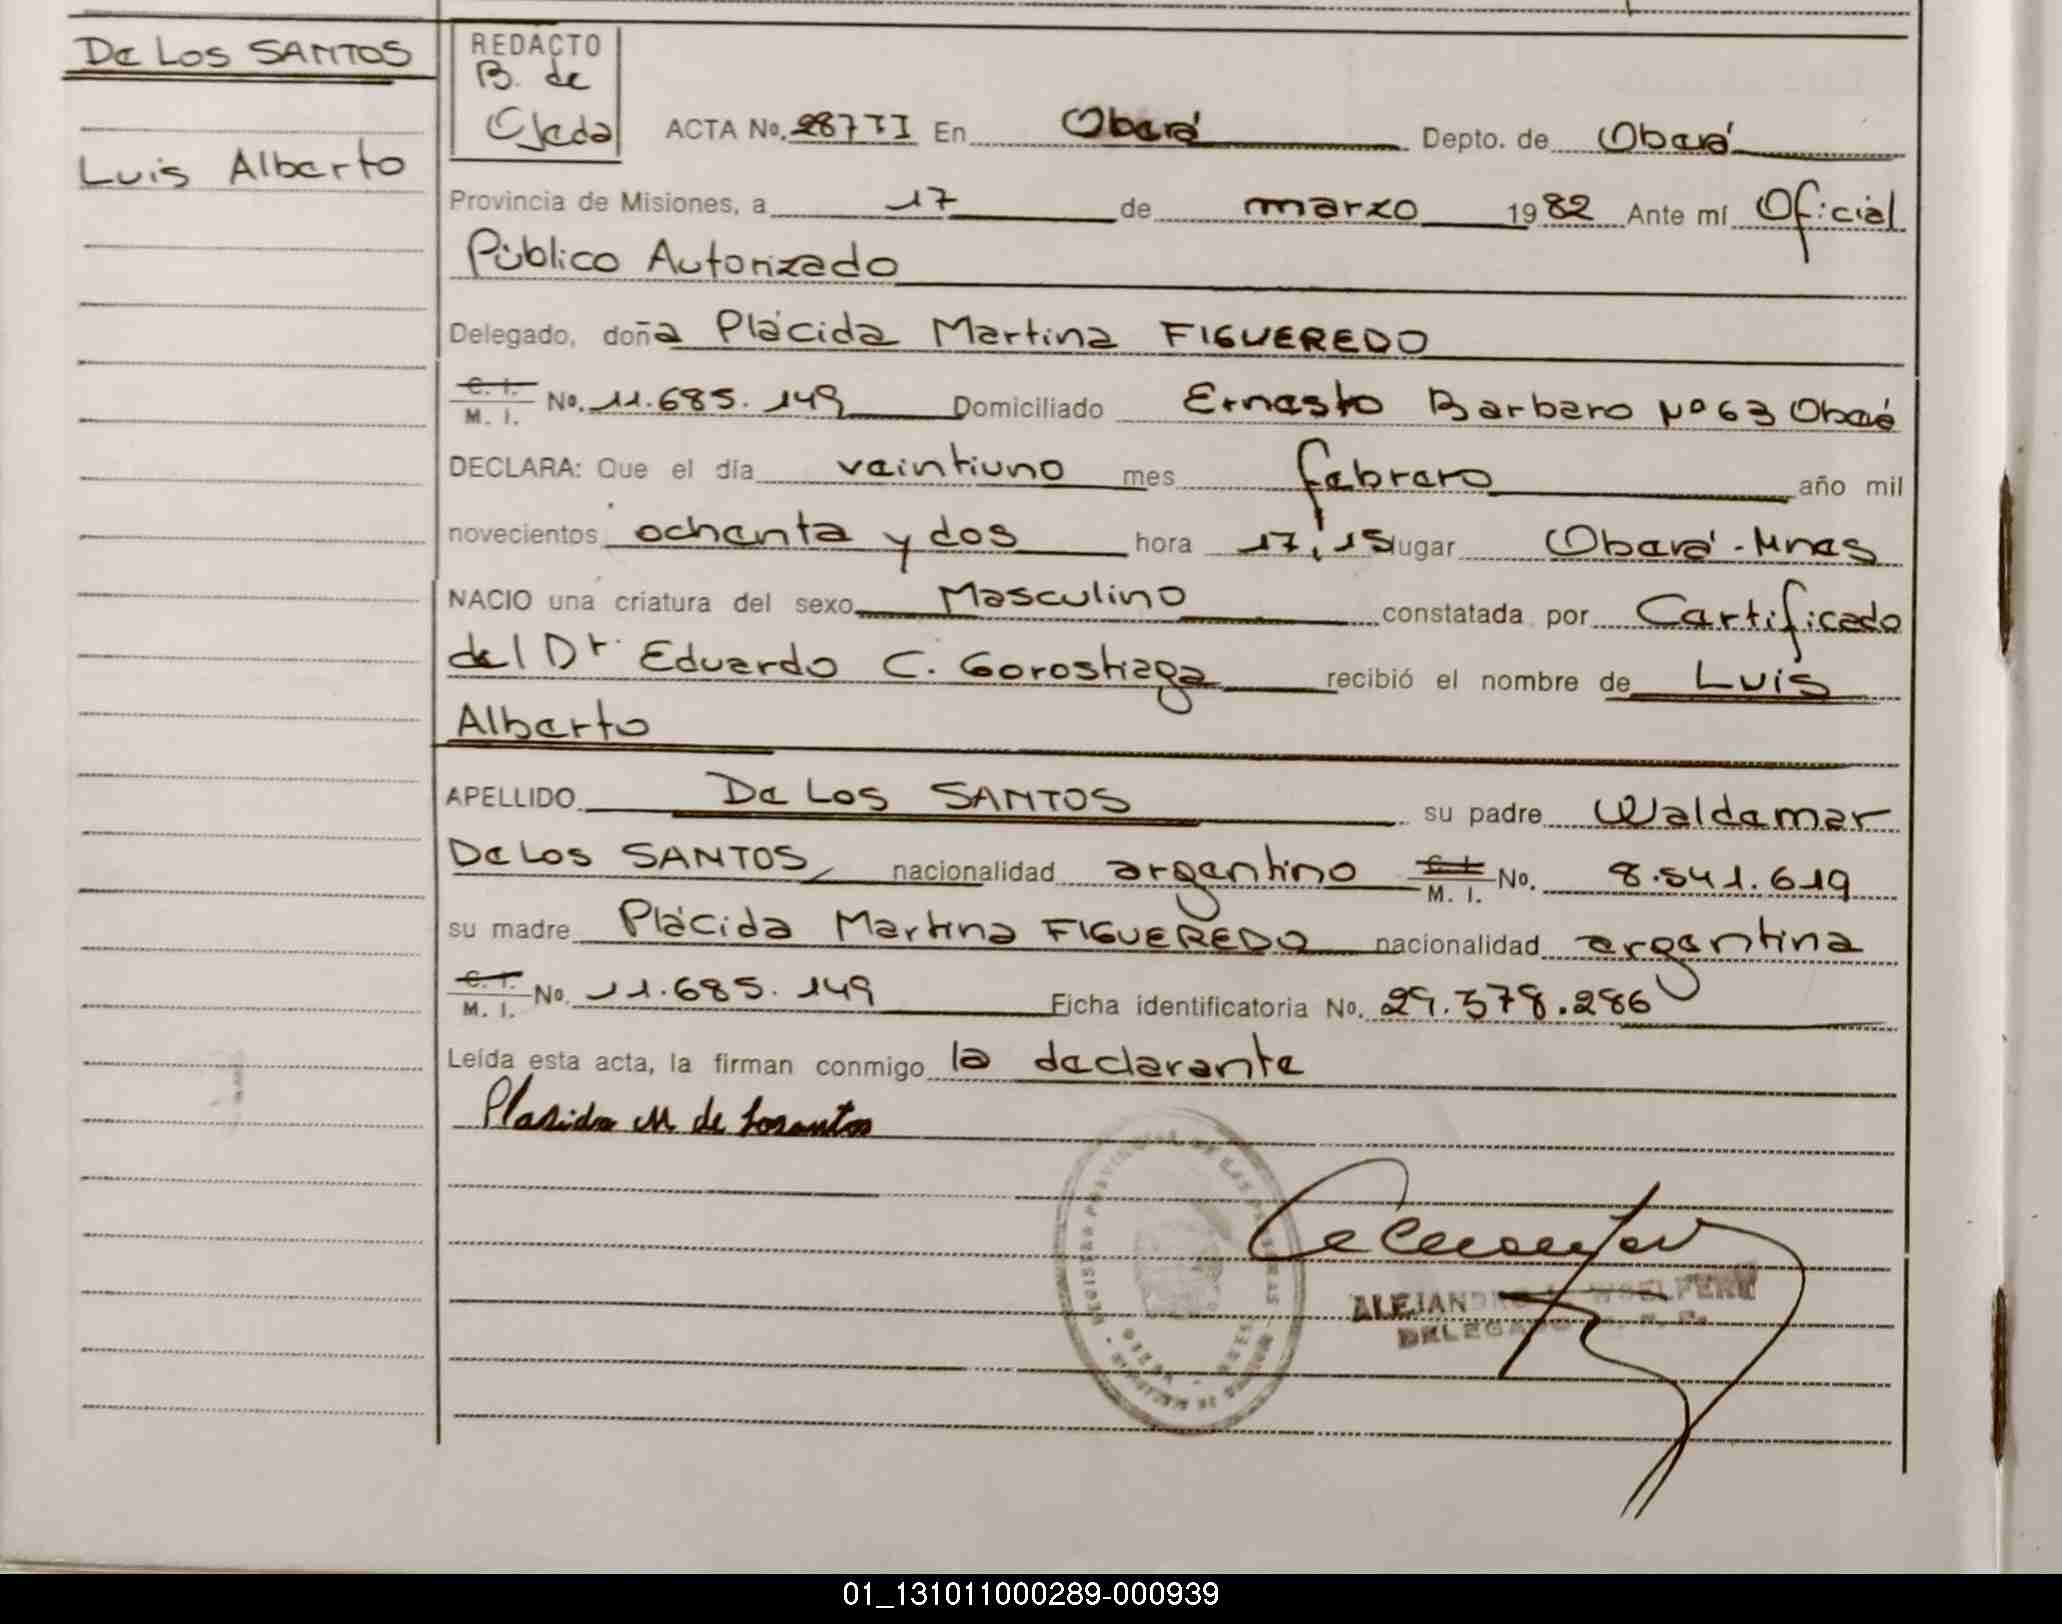 De Los SANTOS
Luis Alberto
REDACTO
B. de
Ojeda
ACTA No. 287TI En Oberá Depto. de Oberá
Provincia de Misiones, a 17 de marzo 1982 Ante mí Oficial
Público Autorizado
Delegado, doña Plácida Martina FIGUEREDO
C. I. M. I. No. 11.685.149 Domiciliado Ernesto Barbaro Nº 63 Oberá
DECLARA: Que el día veintiuno mes febrero año mil
novecientos ochenta y dos hora 17,15 lugar Oberá-Mnes
NACIO una criatura del sexo Masculino constatada por Certificado
del Dr. Eduardo C. Gorostiaga recibió el nombre de Luis
Alberto
APELLIDO De Los SANTOS su padre Waldemar
De Los SANTOS, nacionalidad argentino C. I. M. I. No. 8.541.619
su madre Plácida Martina FIGUEREDO nacionalidad argentina
C. I. M. I. No. 11.685.149 Ficha identificatoria No. 29.378.286
Leída esta acta, la firman conmigo la declarante
Plasida M de Losantos
REGISTRO PROVINCIAL DE LAS PERSONAS
ALEJANDRO WOELFERT
DELEGADO
01_131011000289-000939